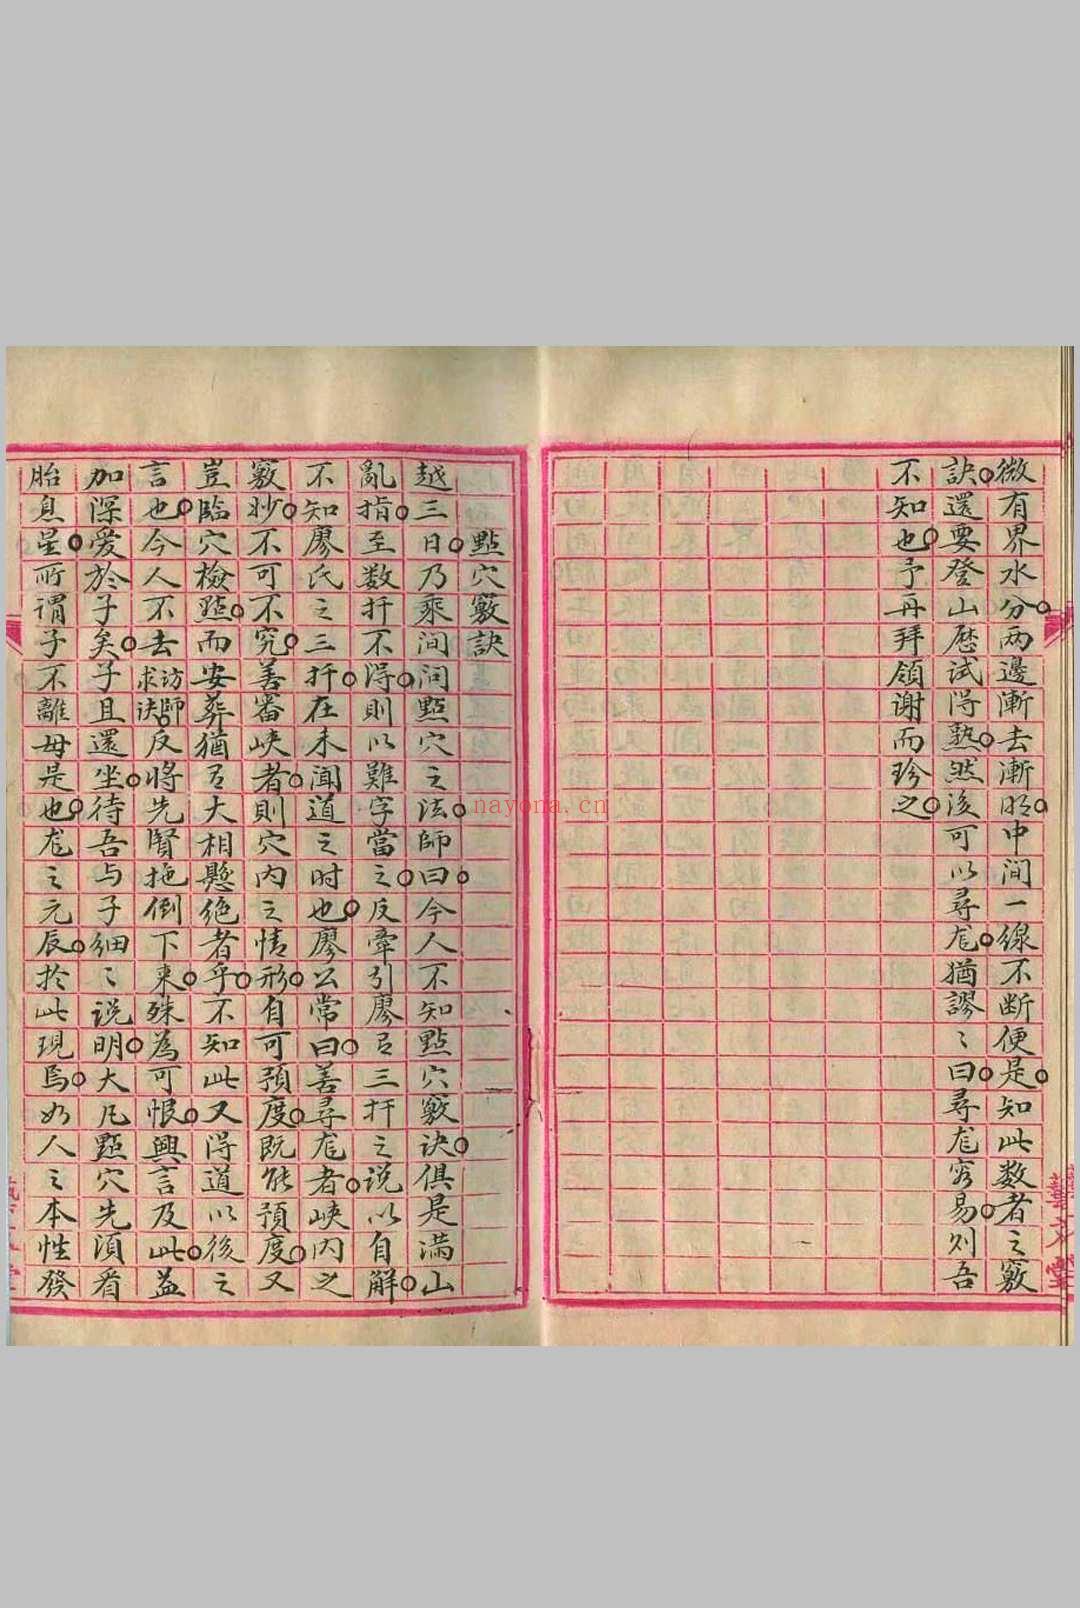 微有界水分两邊漸去漸明中间一線不断便是知此数者之竅
訣還要登山歷试得熟然後可以尋龙猶謬〻曰尋龙容易则吾
不知也予再拜領谢而珍之
點穴竅訣
越三日乃乘间问點穴之法師曰今人不知點穴竅诀俱是满山
亂指至数扞不得則以難字當之反牽引廖公三扞之说以自解
不知廖氏之三扞在未闻道之时也廖公常曰善尋龙者峡内之
竅妙不可不究善審峡者則穴内之情形自可預度既能預度又
豈临穴檢點而安葬猶有大相懸绝者乎不知此又得道以後之
言也今人不去訪師求诀反将先賢拖倒下来殊為可恨興言及此益
加深爱於子矣子且還坐待吾与子细〻说明大凡點穴先須看
胎息星所谓子不離母是也龙之元辰於此現焉如人之本性發
藝文堂
nayona.cn